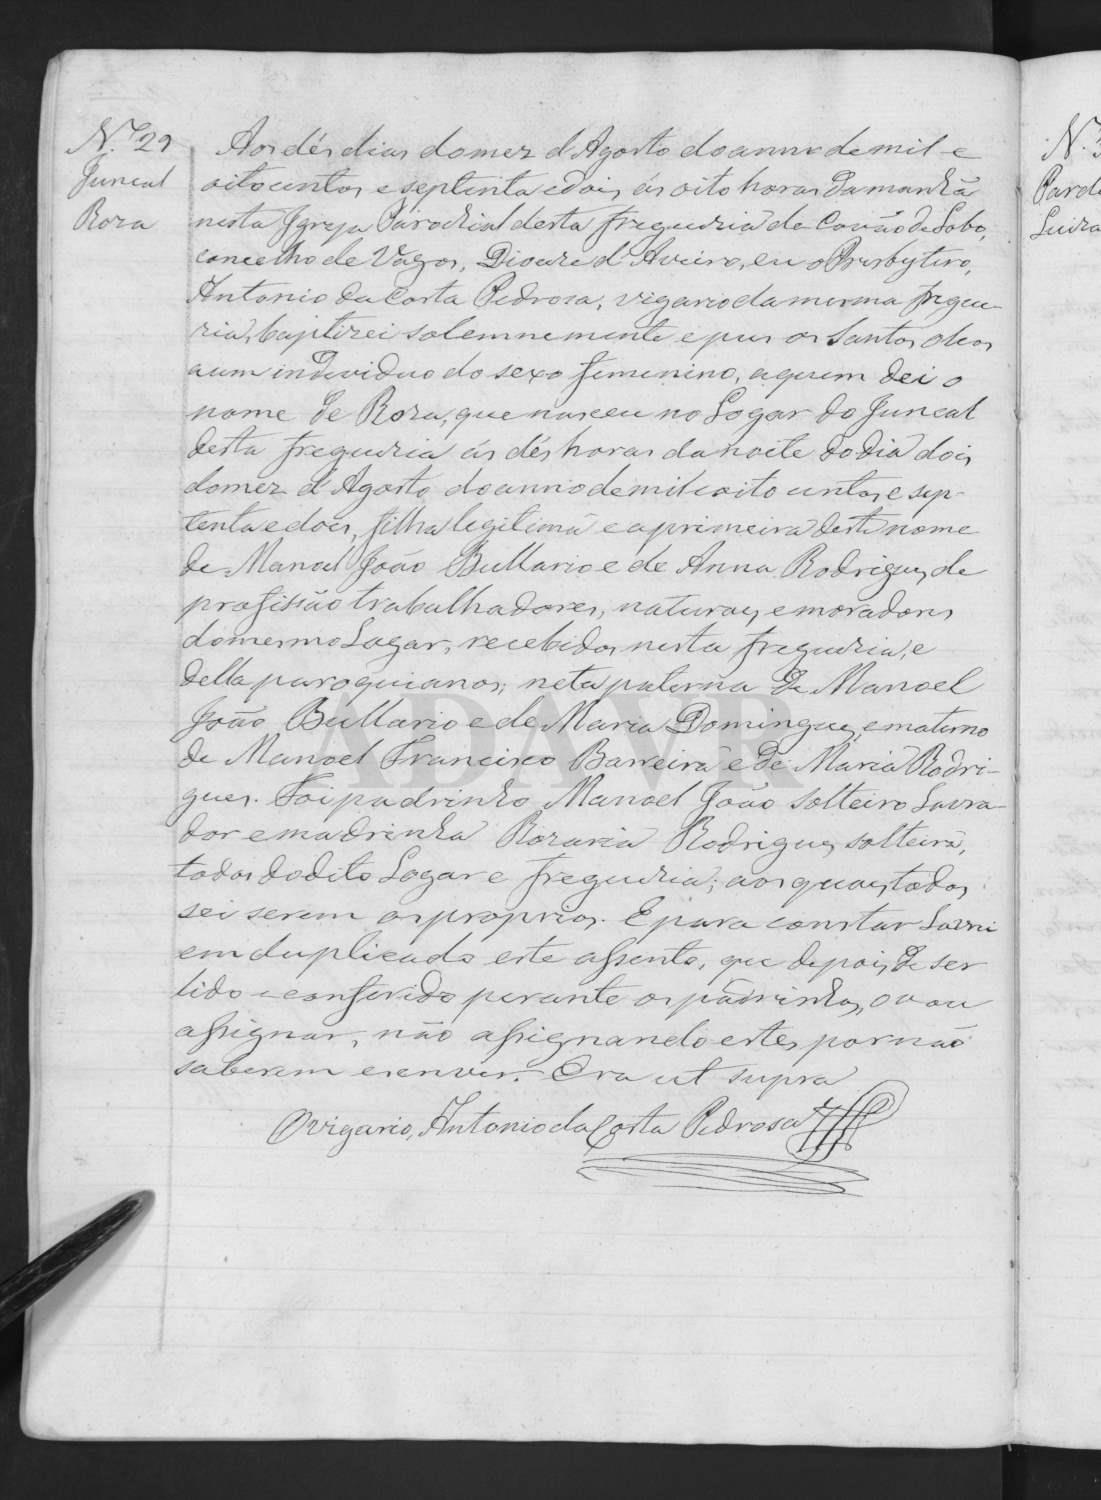 N.º 29
Juncal
Roza
Aos dés dias do mez d'Agosto do anno de mil e
oitocentos e septenta e dois, ás oito horas da manhã
nesta Igreja Parochial desta freguezia de Covão do Lobo,
concelho de Vagos, Diocese d'Aveiro, eu o Presbytero,
Antonio da Costa Pedrosa, vigario da mesma fregue-
zia, baptizei solemnemente e pus os Santos oleos
a um individuo do sexo femenino, a quem dei o
nome de Roza, que nasceu no Logar do Juncal
desta freguezia ás dés horas da noite do dia dois
do mez d'Agosto do anno de mil e oito centos e sep-
tenta e dois, filha legitima e a primeira deste nome
de Manoel João Bullario e de Anna Rodrigues, de
profissão trabalhadores, naturaes, e moradores
do mesmo Logar, recebidos nesta freguezia, e
della paroquianos; neta paterna de Manoel
João Bullario e de Maria Domingues, e materno
de Manoel Francisco Barreira e de Maria Rodri-
gues. Foi padrinho Manoel João solteiro Lavra-
dor e madrinha Rozaria Rodrigues, solteira,
todos do dito Logar e freguezia; aos quaes todos
sei serem os proprios. E para constar Lavrei
em duplicado este assento, que depois de ser
lido e conferido perante os padrinhos, o vou
assignar, não assignando estes por não
saberem escrever. Era ut supra
O vigario, Antonio da Costa Pedrosa
ADAVR
N.º 3
Pard
Luiza